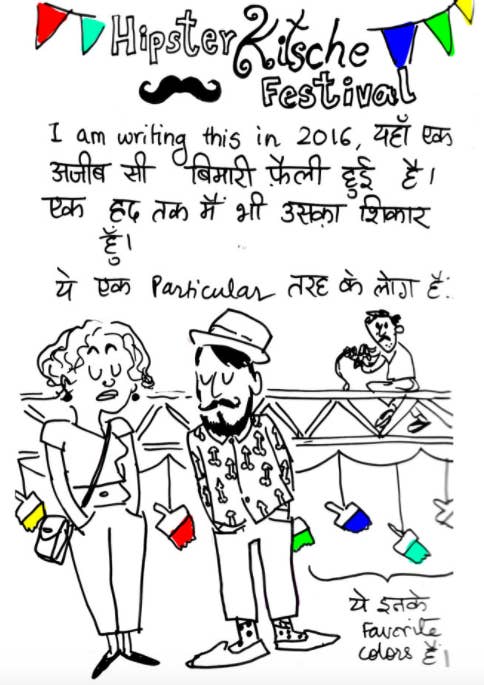 Hipster Kitsche
Festival
I am writing this in 2016, यहाँ एक
अजीब सी बिमारी फ़ैली हुई है।
एक हद तक मैं भी उसका शिकार
हूँ।
ये एक Particular तरह के लोग हैं:
ये इनके
Favorite
colors हैं।